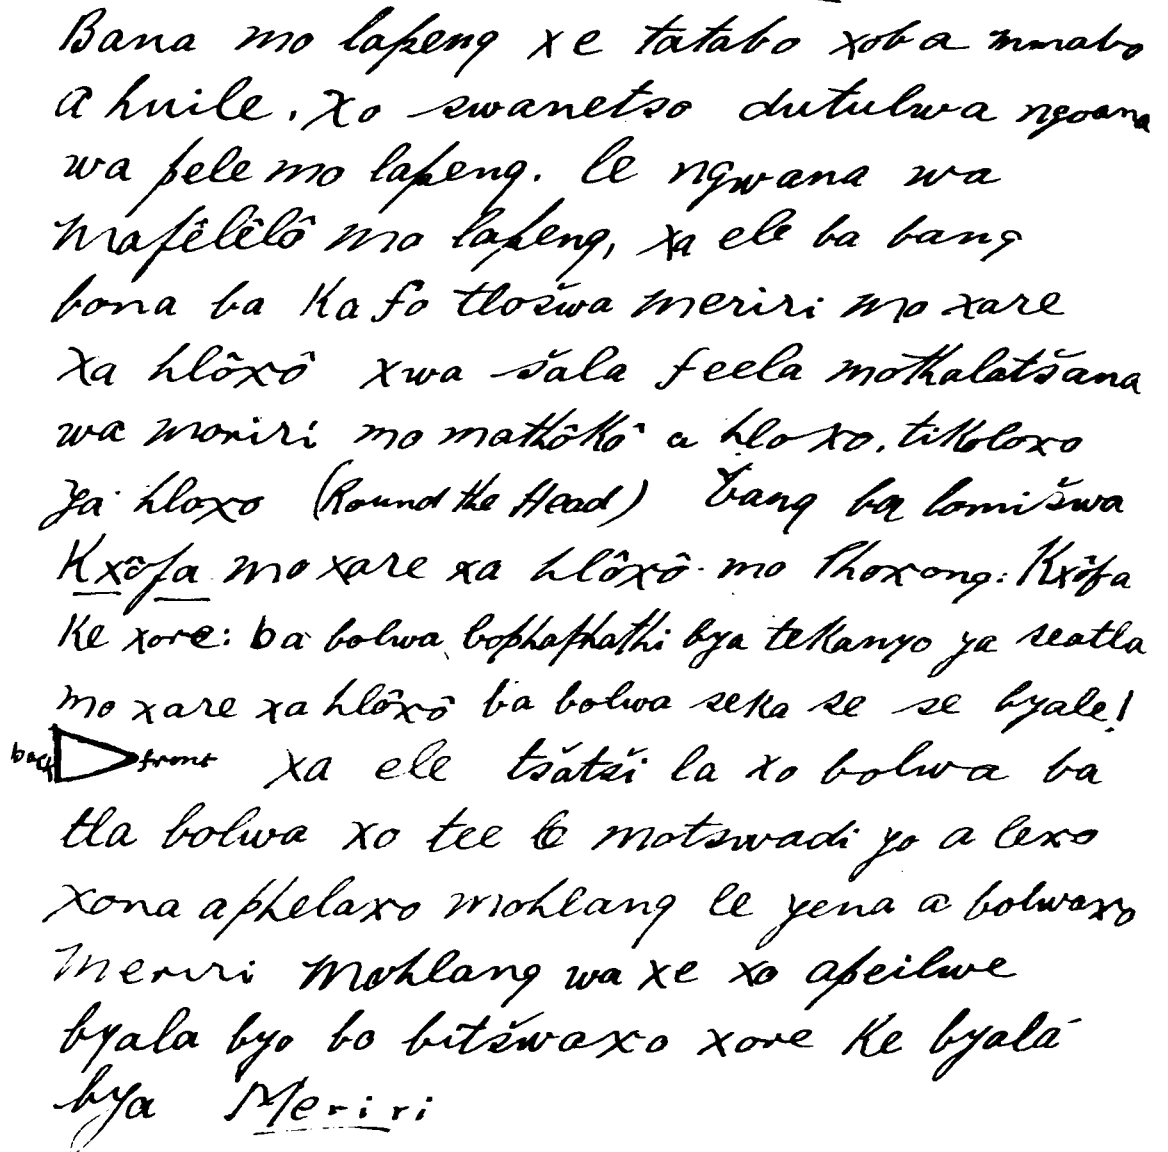 Bana mo lapeng xe tatabo xoba mmabo
a huile. Xo swanetso dutulwa ngoana
wa pele mo lapeng. le ngwana wa
mafêlêlô mo lapeng, xa ele ba bang
bona ba ka fo tlošwa meriri mo xare
xa hlôxô xwa šala feela mothalatšana
wa moriri mo mathôkô a hloxo. tikoloxo
ya hloxo (Round the Head) Bang ba lomišwa
Kxôfa mo xare xa hlôxô. mo Phoxong: Kxôfa
ke xore: ba bolwa bophaphathi bya tekanyo ya seatla
mo xare xa hlôxô ba bolwa seka se se byale!
back front xa ele tšatši la xo bolwa ba
tla bolwa xo tee le motswadi yo a lexo
xona aphelaxo mohlang le yena a bolwaxo
meriri mohlang wa xe xo apeilwe
byala byo bo bitšwaxo xore ke byalá
bya Meriri